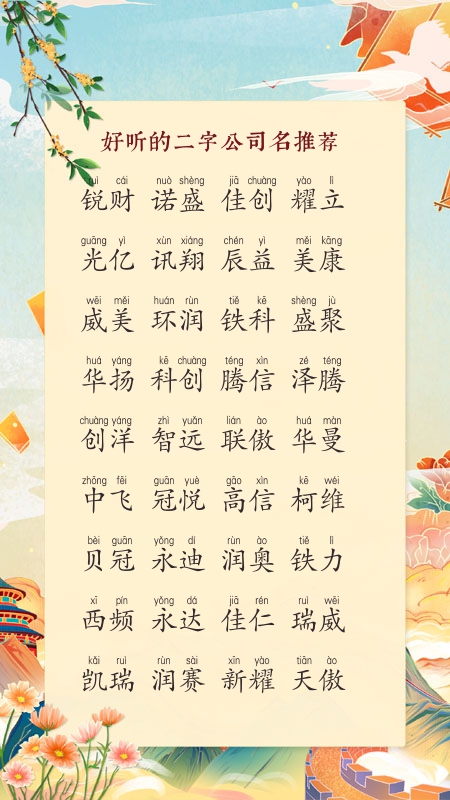 好听的二字公司名推荐
ruì cái nuò shèng jiā chuàng yào lì
锐财 诺盛 佳创 耀立
guāng yì xùn xiáng chén yì měi kāng
光亿 讯翔 辰益 美康
wēi měi huán rùn tiě kē shèng jù
威美 环润 铁科 盛聚
huá yáng kē chuàng téng xìn zé téng
华扬 科创 腾信 泽腾
chuàng yáng zhì yuǎn lián ào huá màn
创洋 智远 联傲 华曼
zhōng fēi guān yuè gāo xìn kē wéi
中飞 冠悦 高信 柯维
bèi guān yǒng dí rùn ào tiě lì
贝冠 永迪 润奥 铁力
xī pín yǒng dá jiā rén ruì wēi
西频 永达 佳仁 瑞威
kǎi ruì rùn sài xīn yào tiān ào
凯瑞 润赛 新耀 天傲